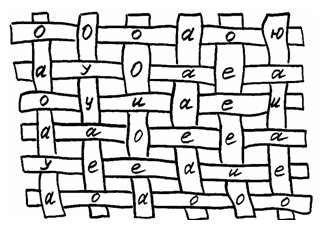 о о о а о ю
а у о а е а
о у и а е и
а а о е е а
у е е а и е
а о а о о о